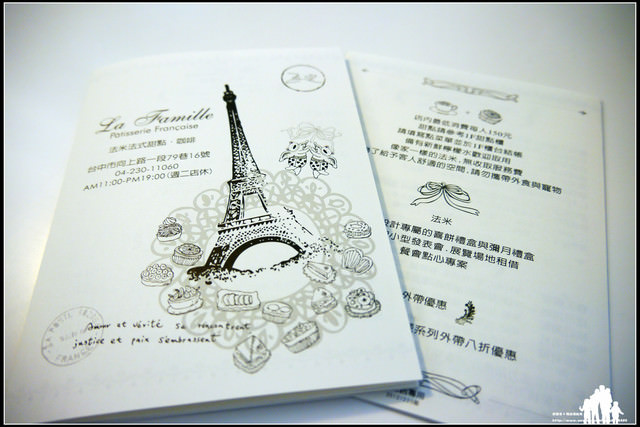 La Famille
Patisserie Française
法米法式甜點·咖啡
台中市向上路一段79巷16號
04-230-11060
AM11:00-PM19:00(週二店休)
Amour et vérité se rencontrent
justice et paix s'embrassent
店內最低消費每人150元
甜點請參考1F甜點櫃
請填寫點菜單並於1F櫃台結帳
備有新鮮檸檬水歡迎取用
像家一樣的法米,無收取服務費
了給予客人舒適的空間,請勿攜帶外食與寵物
法米
計專屬的喜餅禮盒與彌月禮盒
小型發表會.展覽場地租借
餐會點心專案
外帶優惠
系列外帶八折優惠